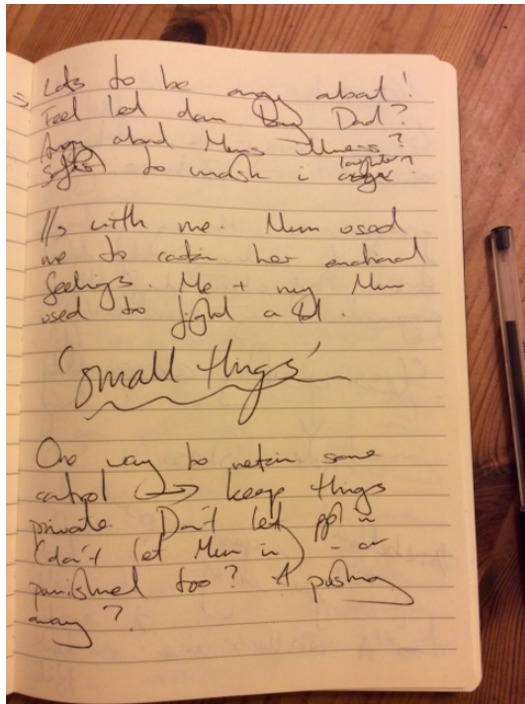 Lots to be angry about!
Feel let down by Dad?
Angry about Mums illness?
to mask laughter
//s with me. Mum used
me to contain her emotional
feelings. Me + my Mum
used to fight a lot.
'small things'
One way to retain some
control keep things
private. Don't let ppl in
(don't let Mum in) - or
punishment too? A pushing
away?